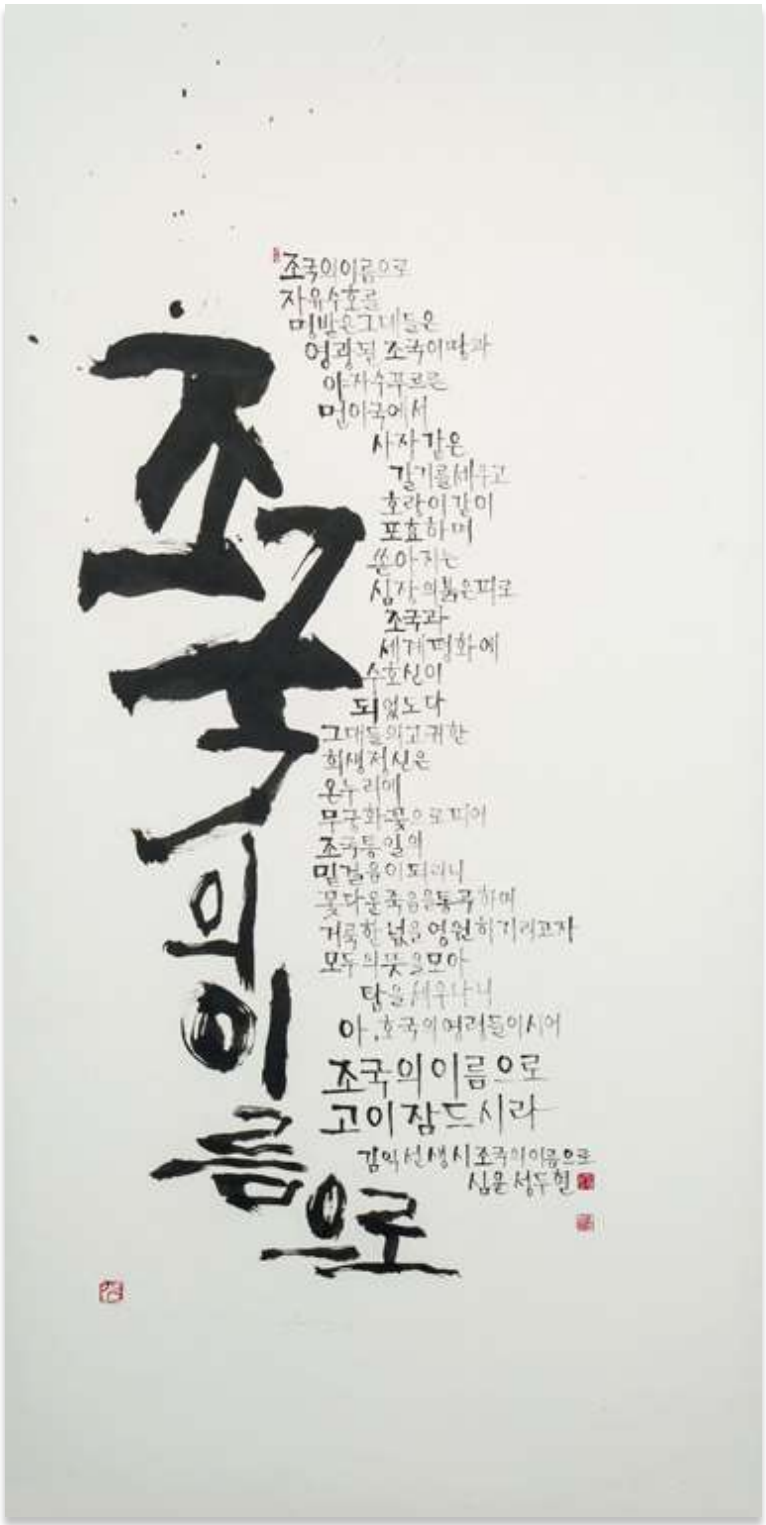 조국의이름으로
조국의이름으로
자유수호를
명받은그대들은
영광된 조국이땅과
야자수푸르른
먼이국에서
사자같은
갈기를세우고
호랑이같이
포효하며
쏟아지는
심장의붉은피로
조국과
세계평화에
수호신이
되었도다
그대들의고귀한
희생정신은
온누리에
무궁화꽃으로피어
조국통일의
밑걸음이되리니
꽃다운죽음을통곡하며
거룩한넋을영원히기리고자
모두의뜻을모아
탑을세우나니
아,호국의영령들이시여
조국의이름으로
고이잠드시라
김익선생시조국의이름으로
심운서두헌